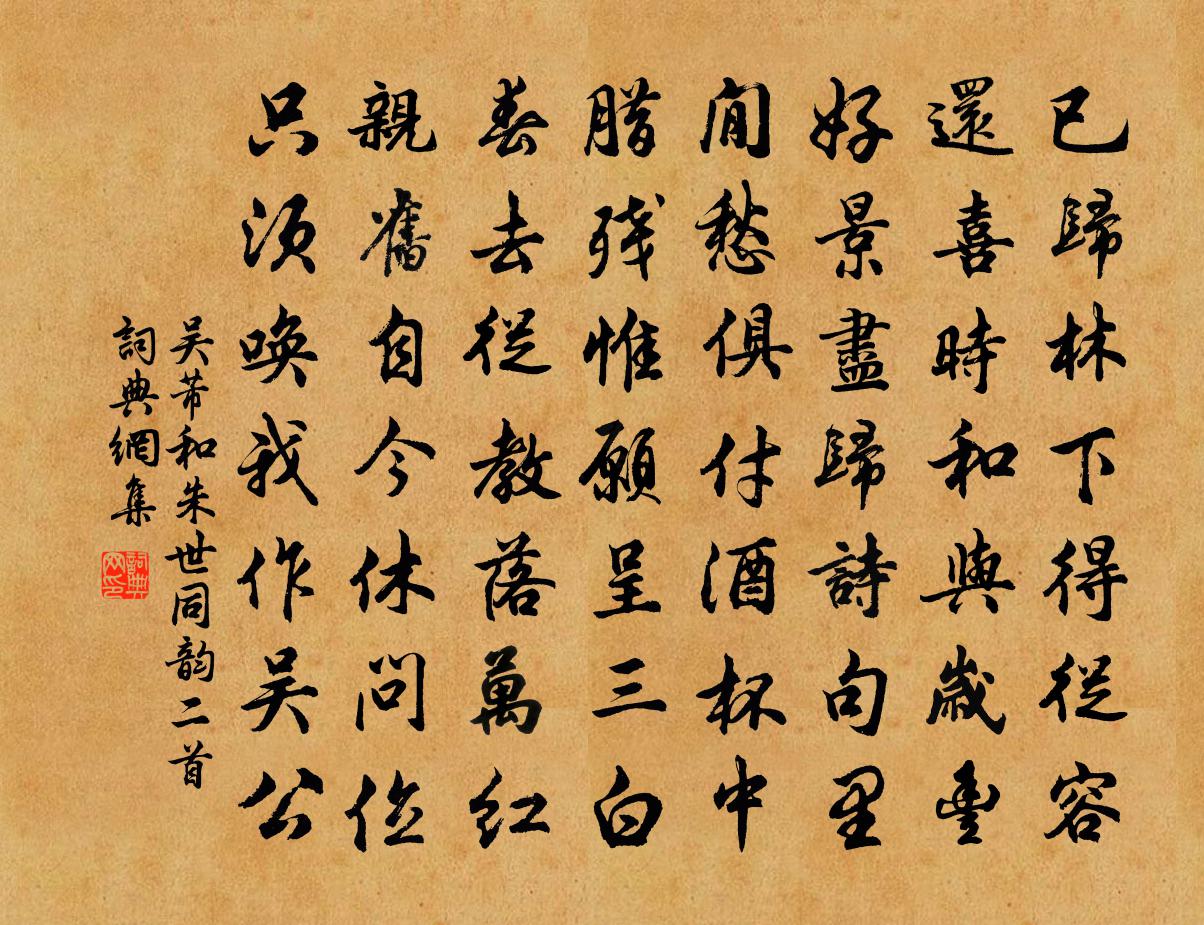 已歸林下得從容
還喜時和與歲豐
好景盡歸詩句里
閒愁俱付酒杯中
腊残惟願呈三白
春去從教落萬紅
親舊自今休問位
只須喚我作吴公
吴芾和朱世同韵二首
詞典網集
詞典网印